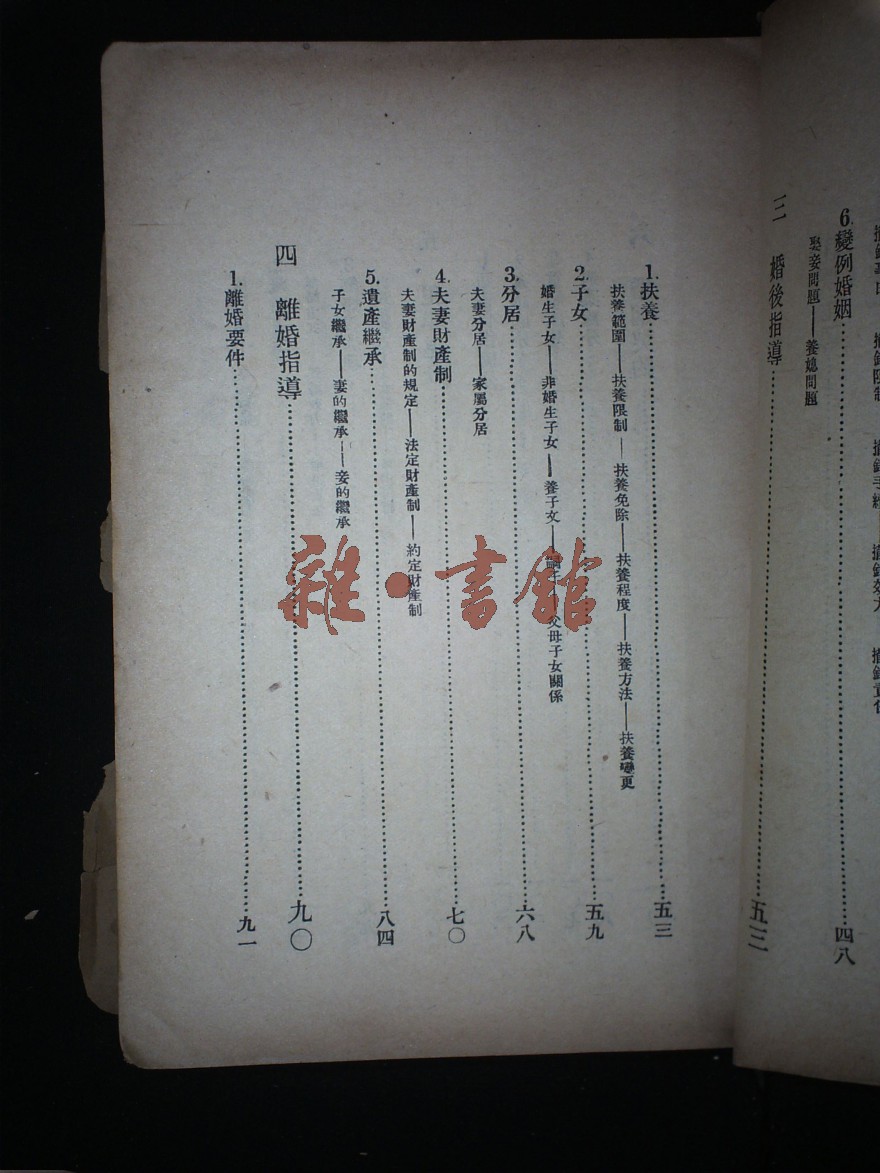 6. 變例婚姻……四八
娶妾問題——養媳問題
三 婚後指導……五三
1. 扶養……五三
扶養範圍——扶養限制——扶養免除——扶養程度——扶養方法——扶養變更
2. 子女……五九
婚生子女——非婚生子女——養子女——父母子女關係
3. 分居……六八
夫妻分居——家屬分居
4. 夫妻財產制……七〇
夫妻財產制的規定——法定財產制——約定財產制
5. 遺產繼承……八四
子女繼承——妻的繼承——妾的繼承
四 離婚指導……九〇
1. 離婚要件……九一
雜·書館